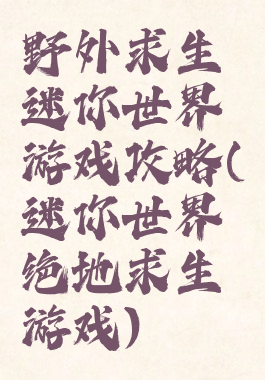 野外求生
迷你世界
游戏攻略(
迷你世界
绝地求生
游戏)